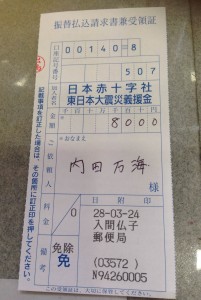 振替払込請求書兼受領証
口座記号番号 00140=8
507
加入者名 日本赤十字社
東日本大震災義援金
金額 千百十万千百十円
8000
ご依頼人 おなまえ
内田万海
様
料金 0
日附印
28-03-24
入間仏子
郵便局
備考 免除
免
(03572)
N94260005
記載事項を訂正した場合は、その箇所に訂正印を押してください。